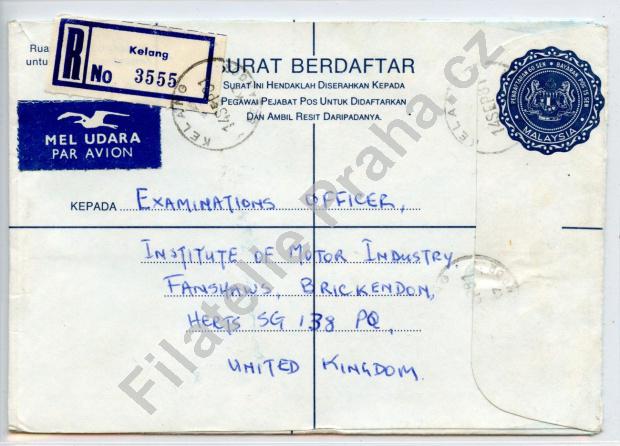 Rua
untu
R
Kelang
No 3555
SURAT BERDAFTAR
SURAT INI HENDAKLAH DISERAHKAN KEPADA
PEGAWAI PEJABAT POS UNTUK DIDAFTARKAN
DAN AMBIL RESIT DARIPADANYA.
MEL UDARA
PAR AVION
KELANG
KELANG
14SEP81
PENDAFTARAN 80 SEN
MALAYSIA
KEPADA EXAMINATIONS OFFICER,
INSTITUTE OF MOTOR INDUSTRY.
FANSHAWS, BRICKENDON,
HERTS SG 138 PQ,
UNITED KINGDOM.
Filatelie Praha.cz